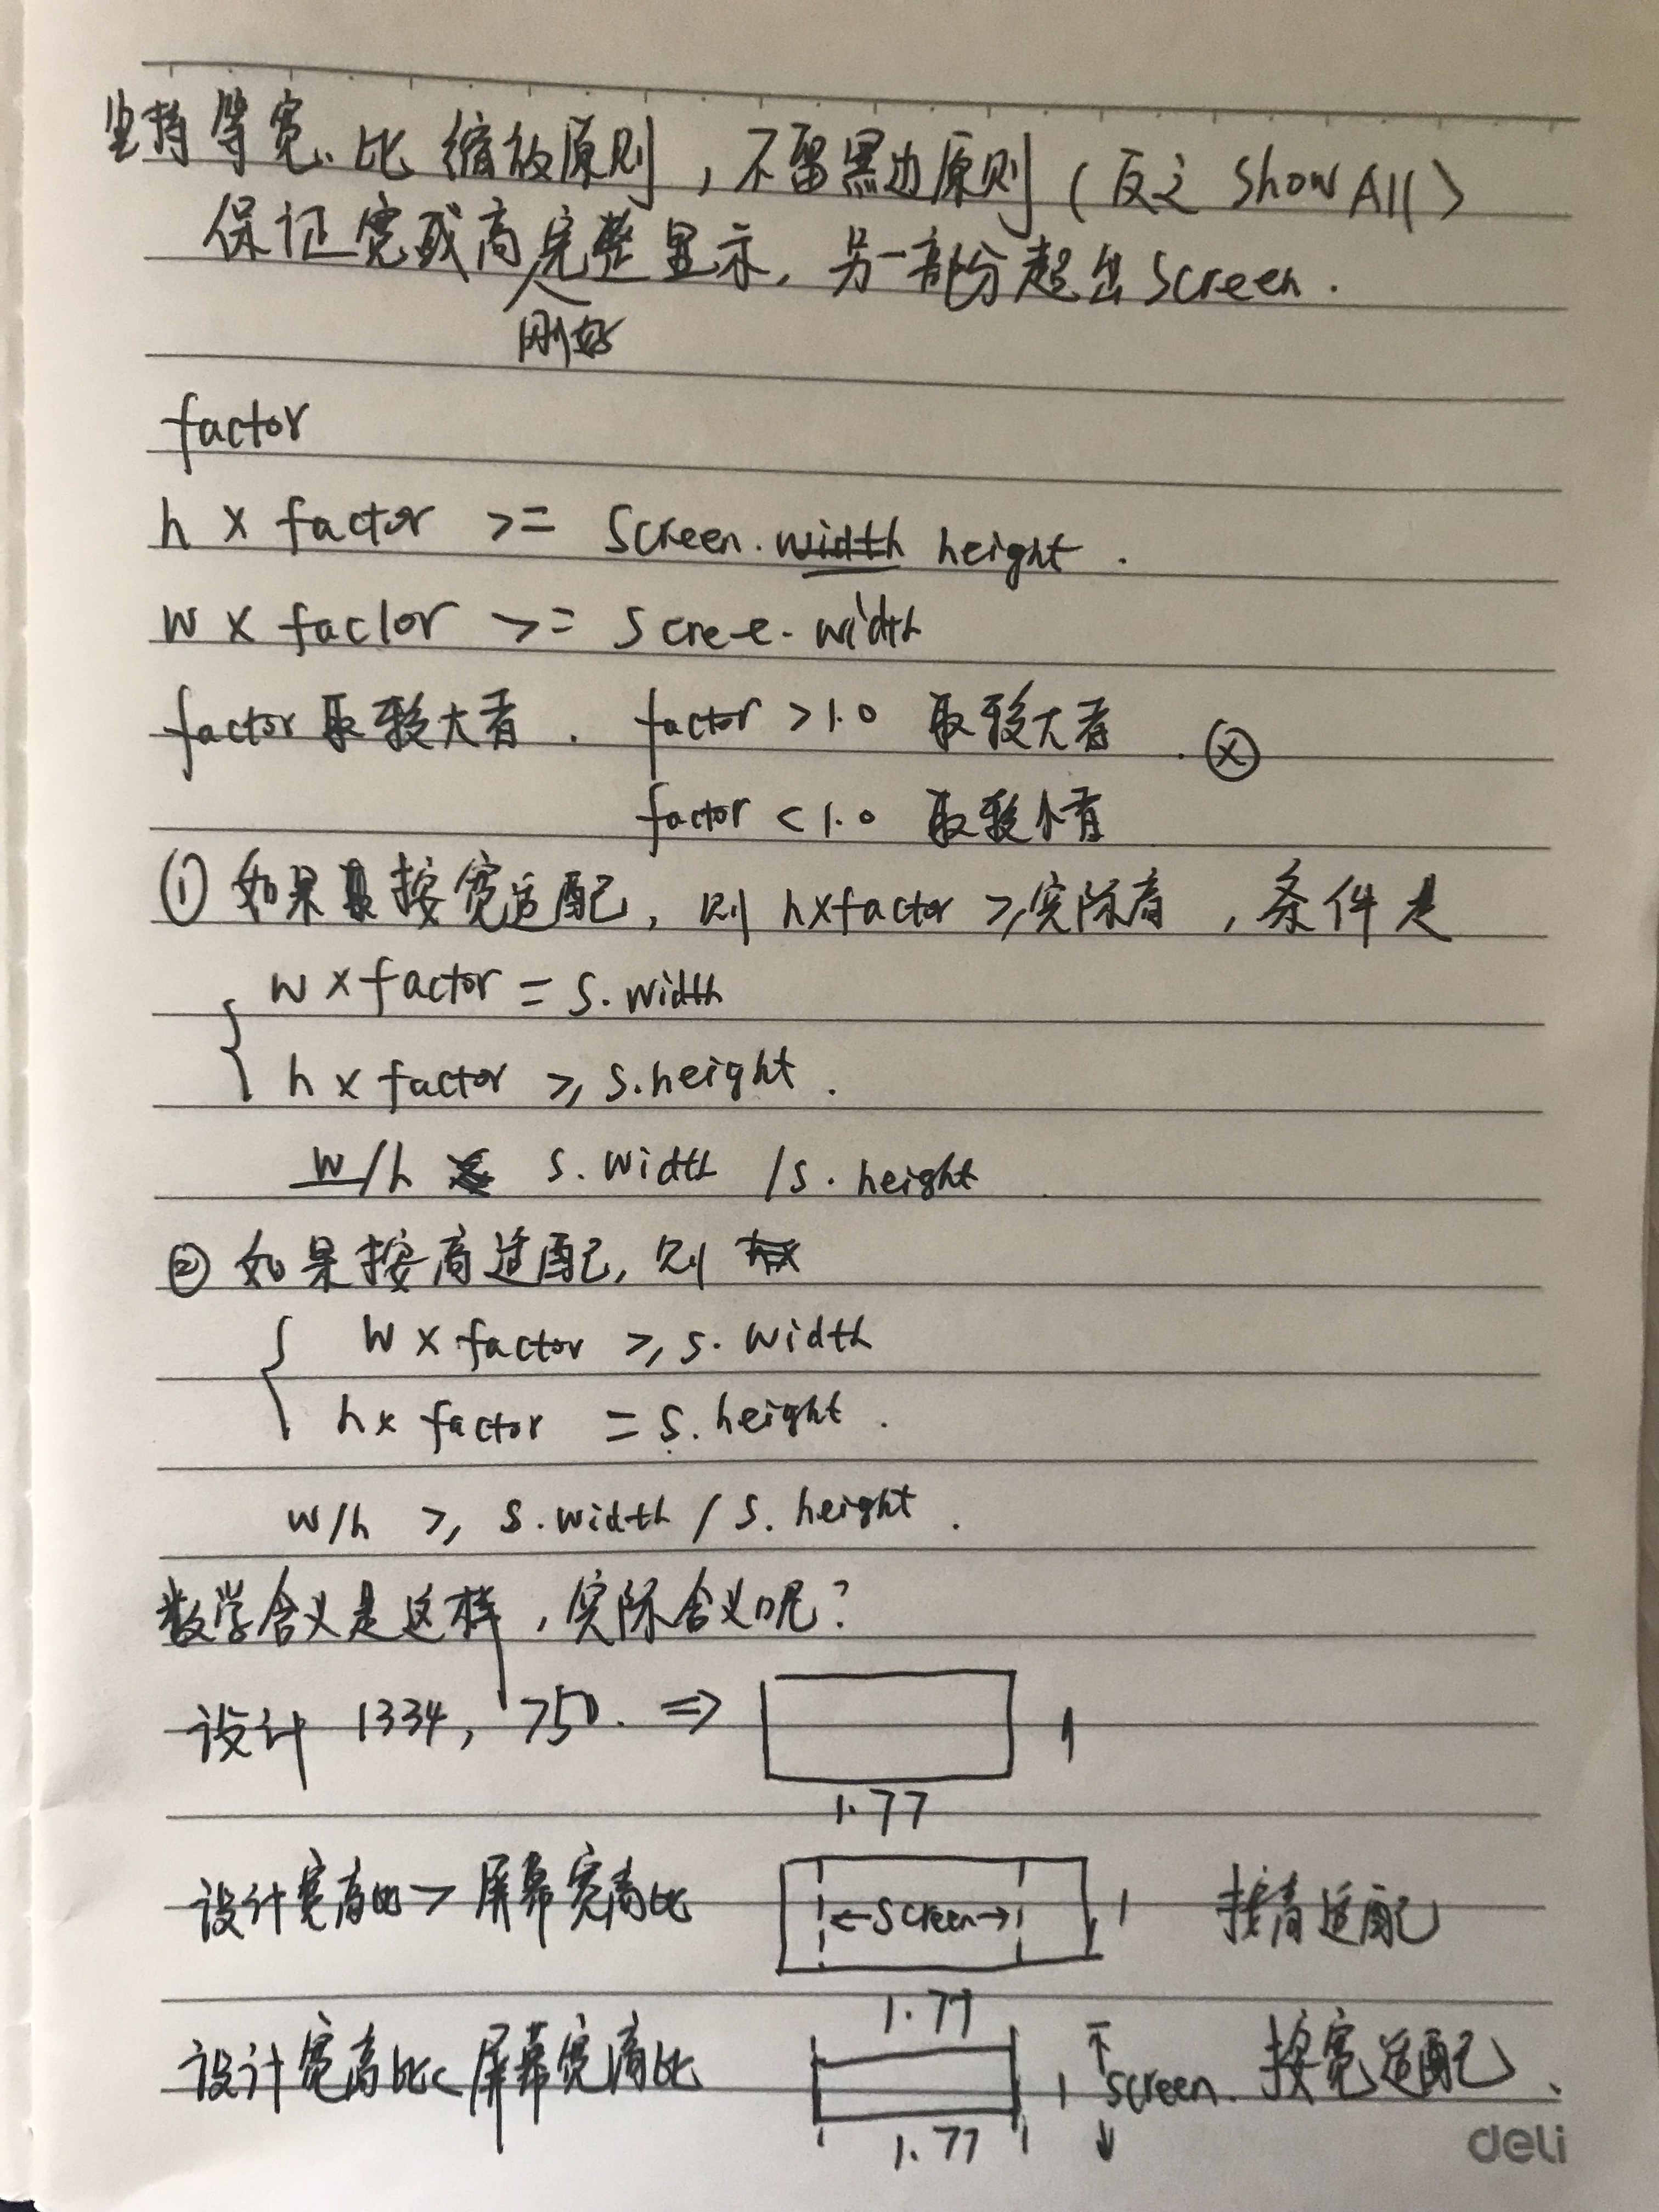 坚持等宽、比缩放原则，不留黑边原则（反之 Show All）
保证宽或高完整显示，另一部分超出Screen.
刚好
factor
h x factor >= Screen. width height.
w x factor >= Scree. width
factor 取较大者. factor >1.0 取较大者. ⓧ
factor <1.0 取较小者
① 如果是按宽适配，则 hxfactor ≥实际高，条件是
w x factor = S.width
h x factor ≥ S.height.
w/h S.width /S.height
② 如果按高适配，则
w x factor ≥ S.width
h x factor = S.height.
w/h ≥ S.width / S.height.
数学含义是这样，实际含义呢？
设计 1334, 750. ⇒ 1
1.77
设计宽高比 > 屏幕宽高比 ←Screen→ 1 按高适配
1.77
设计宽高比< 屏幕宽高比 1 ↑Screen.↓ 按宽适配、
1.77
deli